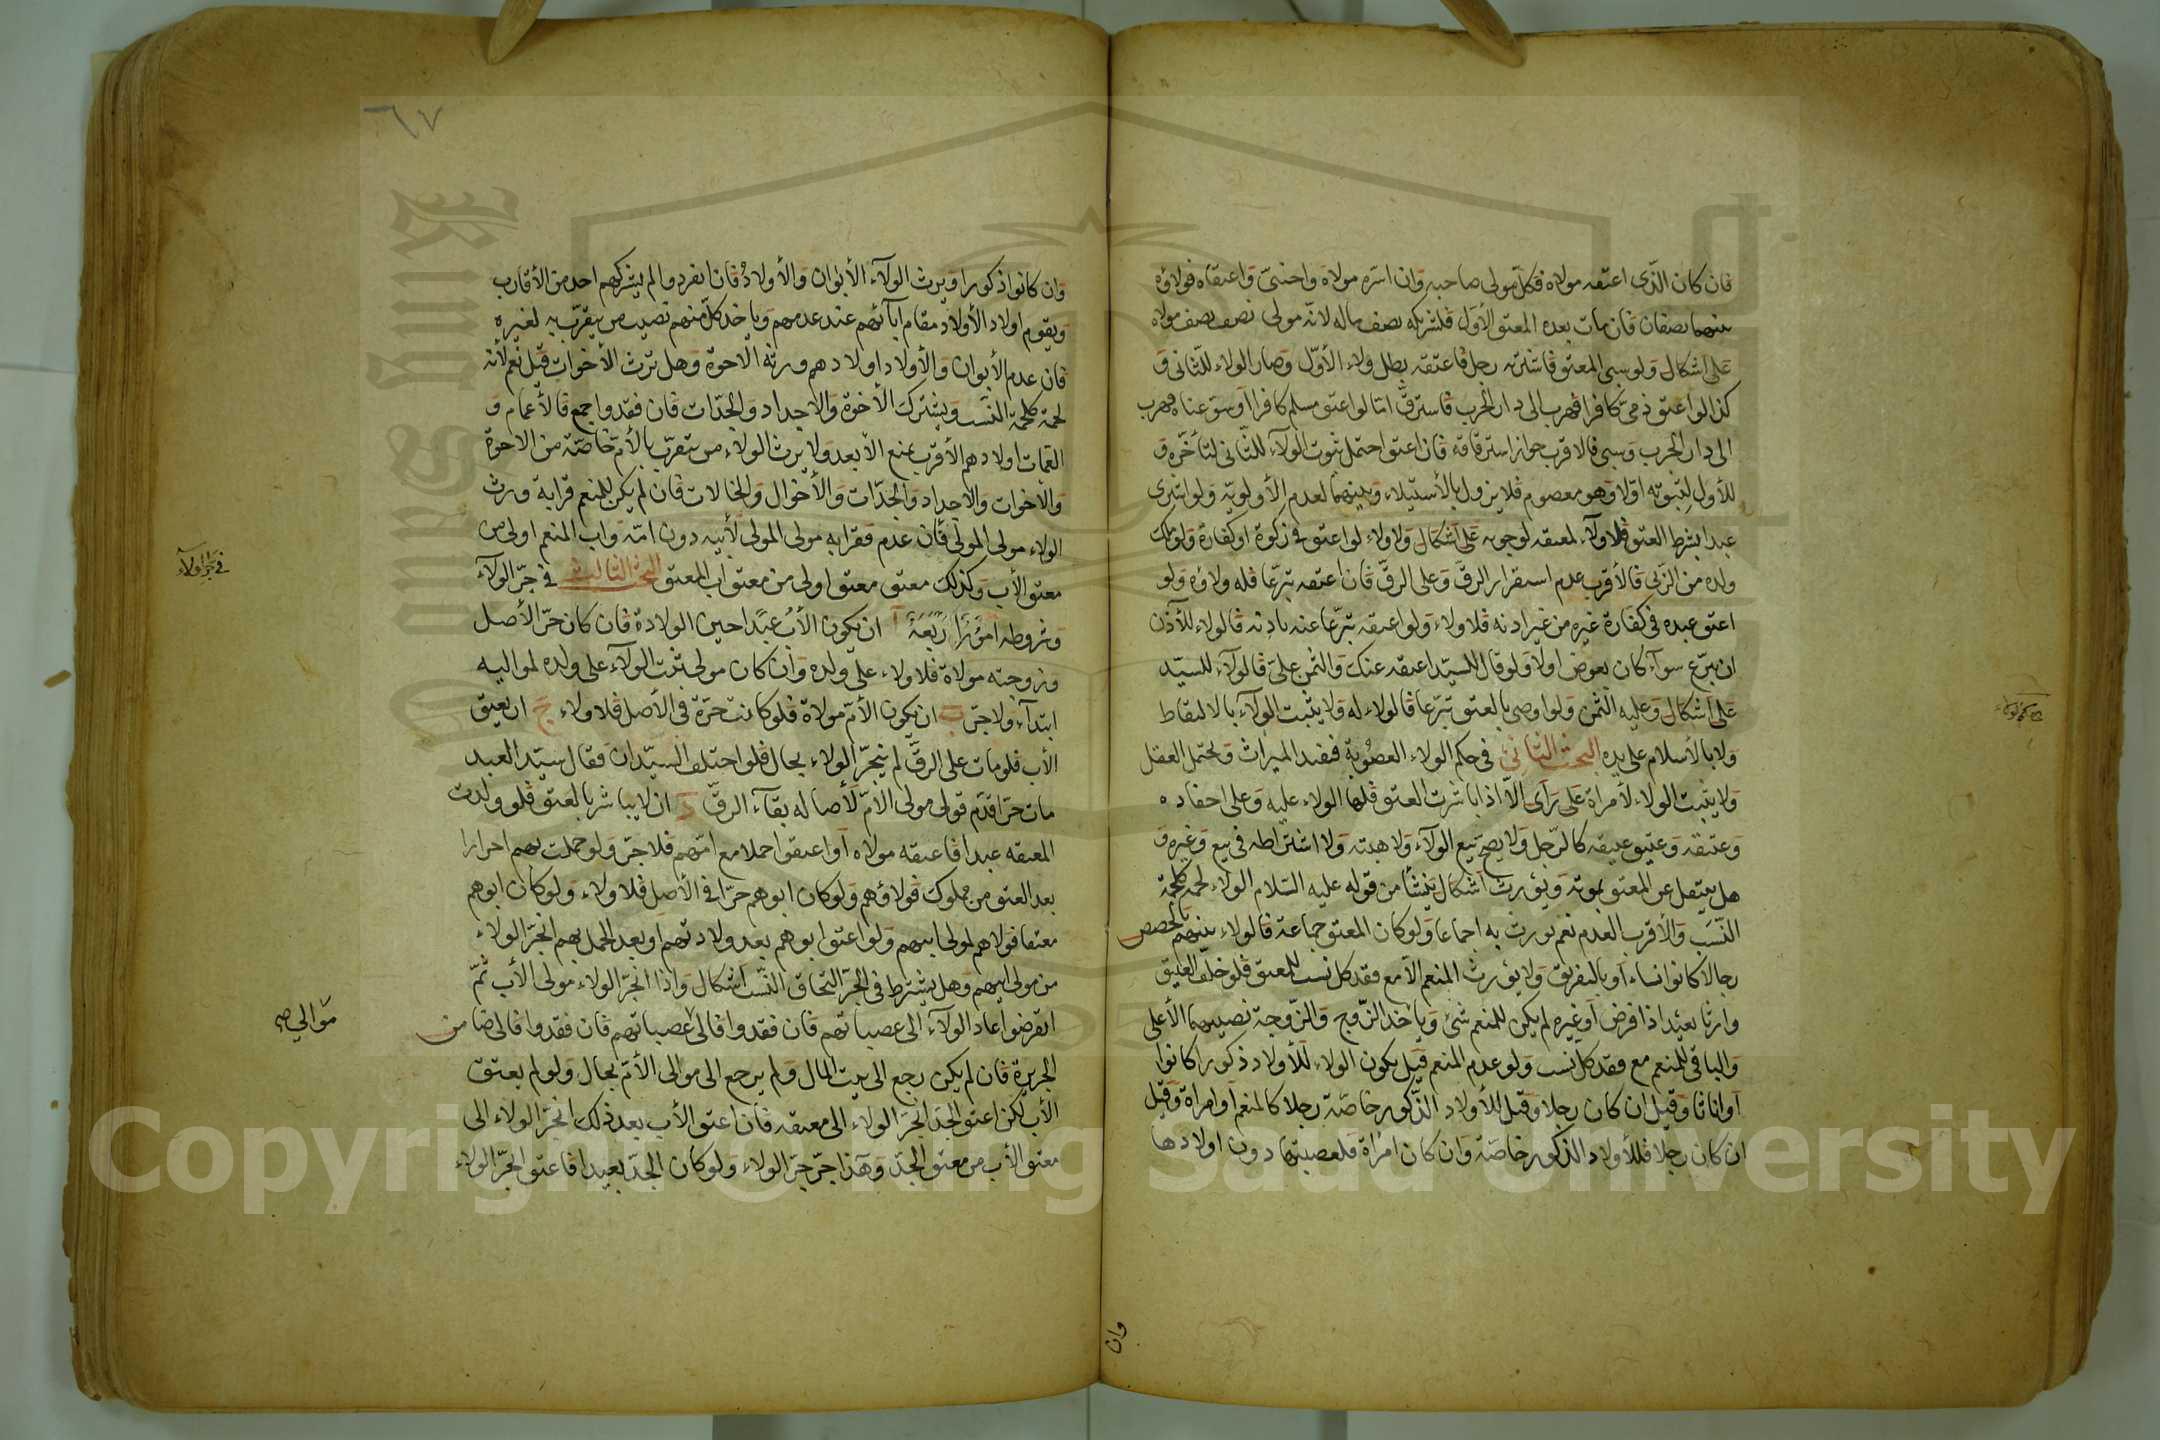 فان كان الذى اعتقه مولاه فكل مولى صاحبه وان اسره مولاه واجنبى واعتقاه فولاؤه
بينهما نصفان فان مات بعده المعتق الأول فلشريكه نصف ماله لانه مولى نصف نصف مولاه
على اشكال ولو سبى المعتق فاشتريه رجل فاعتقه بطل ولاء الأول وصار الولاء للثانى و
كذا لو اعتق ذمى كافرا فهرب الى دار الحرب فاسترق اما لو اعتق مسلم كافرا او سبق عتاه فهرب
الى دار الحرب وسبى فالاقرب جواز استرقاقه فان اعتق احتمل ثبوت الولاء للثانى لتأخره و
للأول لثبوته اولا وهو معصوم فلا يزول بالأستيلاء وبينهما لعدم الأولوية ولو اشترى
عبدا بشرط العتق فلا ولاء لمعتقه لوجوبه على اشكال ولا ولاء لو اعتق فى زكوة او كفارة ولو ملك
ولده من الزنى فالأقرب عدم استقرار الرق وعلى الرق فان اعتقه تبرعا فله ولاؤه ولو
اعتق عبده فى كفارة غيره من غير اذنه فلا ولاء ولو اعتقه تبرعا عنه باذنه فالولاء للآذن
ان تبرع سواء كان بعوض اولا ولو قال للسيد اعتقه عنك والثمن على فالولاء للسيد
على اشكال وعليه الثمن ولو اوصى بالعتق تبرعا فالولاء له ولا يثبت الولاء بالالتقاط
ولا بالأسلام على يده البحث الثانى فى حكم الولاء العصوبة فيفيد الميراث ويحتمل العقل
ولا يثبت الولاء لأمراة على رأى الا اذا باشرت العتق فلها الولاء عليه وعلى احفاده
وعتيقه وعتيق عتيقه كالرجل ولا يصح بيع الولاء ولا هبته ولا اشتراطه فى بيع وغيره و
هل ينتقل عن المعتق بموته ويورث اشكال ينشأ من قوله عليه السلام الولاء لحمة كلحمة
النسب والأقرب العدم نعم يورث به اجماعا ولو كان المعتق جماعة فالولاء بينهم بالحصص
رجالا كانوا نساء او بالتفريق ولا يورث المنعم الا مع فقد كل نسب للمعتق فلو خلف العتيق
وارثا بعيدا ذا فرض او غيره لم يكن للمنعم شئ وياخذ الزوج والزوجة نصيبهما الأعلى
والباقى للمنعم مع فقد كل نسب ولو عدم المنعم قيل يكون الولاء للأولاد ذكورا كانوا
او اناثا وقيل ان كان رجلا وقيل للأولاد الذكور خاصة رجلا كا المنعم او امراة وقيل
ان كان رجلا فللأولاد الذكور خاصة وان كان امراة فلعصبتها دون اولادها
وان
٦٧
وان كانوا ذكورا ويرث الولاء الأبوان والأولاد فان انفردوا لم يشركهم احد من الأقارب
ويقوم اولاد الأولاد مقام ابائهم عند عدمهم وياخذ كل منهم نصيب من يتقرب به لغيره
فان عدم الأبوان والأولاد اولادهم ورثه الأخوة وهل ترث الأخوات قيل نعم لأنه
لحمة كلحمة النسب ويشترك الأخوة والاجداد والجدات فان فقدوا جمع فالأعمام و
العمات اولادهم الأقرب يمنع الأبعد ولا يرث الولاء من يتقرب بالأم خاصة من الاخوة
والأخوات والاجداد والجدات والأخوال والخالات فان لم يكن للمنعم قرابة ورث
الولاء مولى المولى فان عدم فقرابه مولى المولى لأبيه دون امه واب المنعم اولى من
معتق الأب وكذلك معتق معتق اولى من معتق اب المعتق البحث الثالث فى جر الولاء
وشروطه امور اربعة ا ان يكون الأب عبدا حين الولادة فان كان حر الأصل
وزوجته مولاة فلا ولاء على ولده وان كان مولى ثبت الولاء على ولده لمواليه
ابتداء ولا جر ب ان يكون الأم مولاة فلو كانت حرة فى الأصل فلا ولاء ج ان يعتق
الأب فلو مات على الرق لم ينجر الولاء بحال فلو اختلف السيدان فقال سيد العبد
مات حرا قدم قول مولى الأم لأصاله بقاء الرق د ان لا يباشر بالعتق فلو ولدت
المعتقه عبدا فاعتقه مولاه او اعتقوا حملا مع امهم فلا جر ولو حملت بهم احرارا
بعد العتق من مملوك فولاؤهم ولو كان ابوهم حرا فى الأصل فلا ولاء ولو كان ابوهم
معتقا فولاهم لمولى ابيهم ولو اعتق ابوهم بعد ولادتهم او بعد الحمل بهم انجر الولاء
من مولى امهم وهل يشترط فى الجر التحاق النسب اشكال واذا انجر الولاء مولى الأب ثم
انقرضوا عاد الولاء الى عصباتهم فان فقدوا فالى عصباتهم فان فقدوا فالى ضامن
الجريرة فان لم يكن رجع الى بيت المال ولم يرجع الى موالى الأم بحال ولو لم يعتق
الأب لكن اعتق الجد انجر الولاء الى معتقه فان اعتق الأب بعد ذلك انجر الولاء الى
معتق الأب من معتق الجد وهذا جر جر الولاء ولو كان الجد بعيدا فاعتق انجر الولاء
فى جر الولاء
موالي صح
Copyright © King Saud University